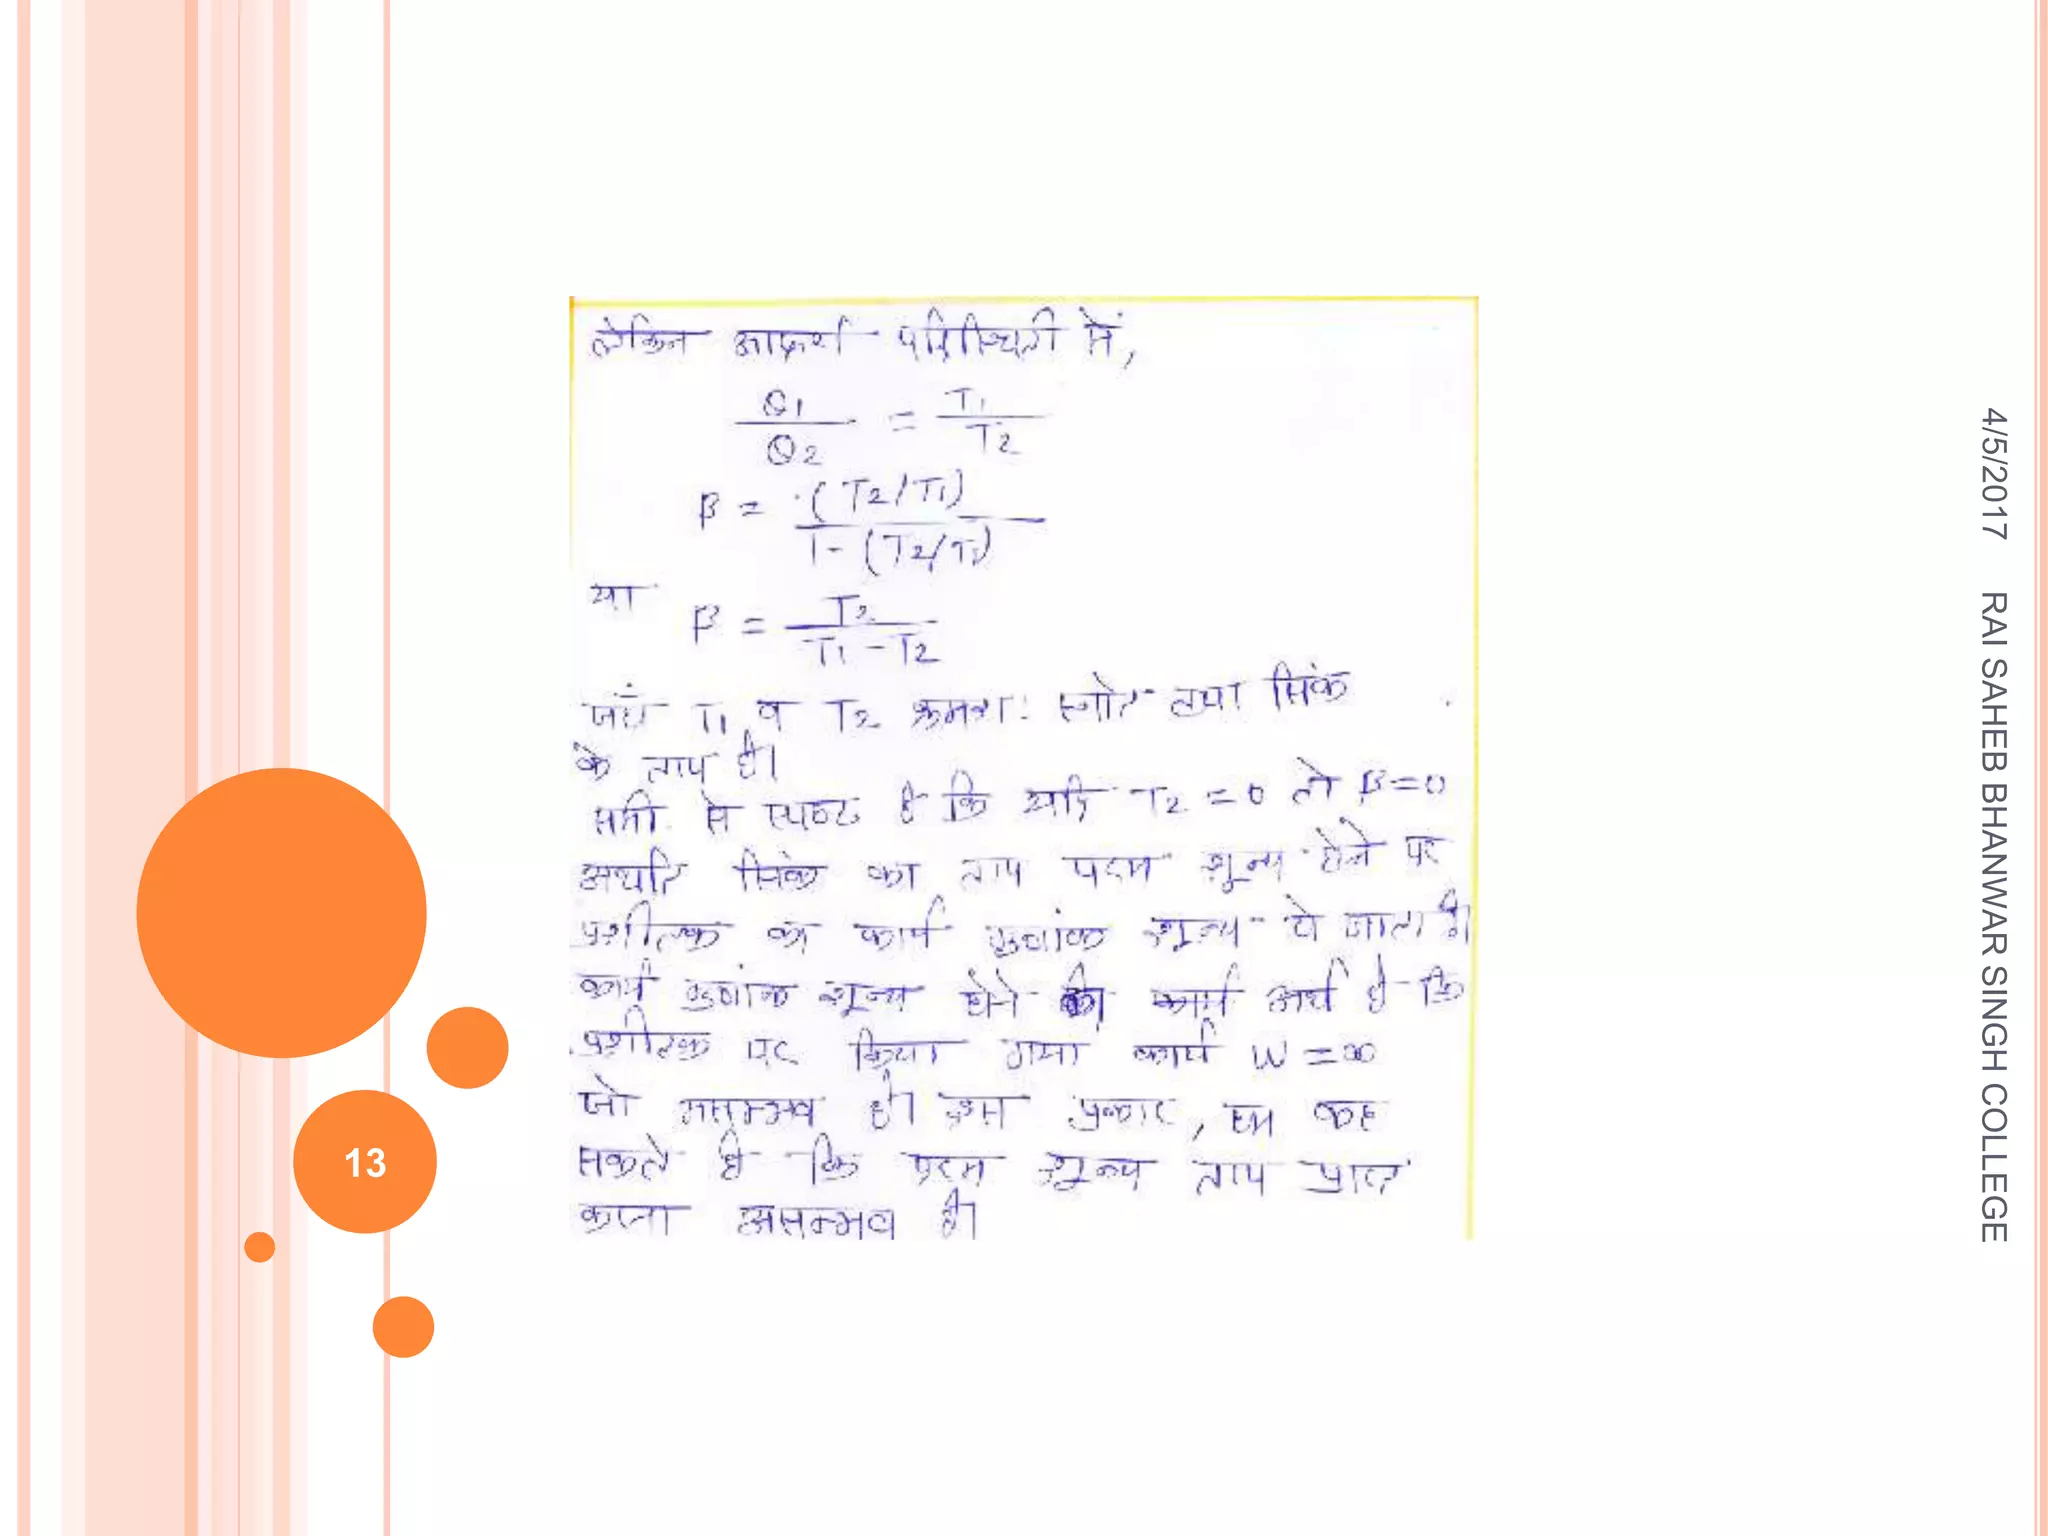 लेकिन आदर्श परिस्थिती में,
Q1/Q2 = T1/T2
β = (T2/T1)/1-(T2/T1)
या β = T2/T1-T2
जहाँ T1 व T2 क्रमश: स्त्रोत तथा सिंक
के ताप है।
समी. से स्पष्ट है कि यदि T2 = 0 तो β=0
अर्थात सिंक का ताप परम शून्य होने पर
प्रशीतक का कार्य गुणांक शून्य हो जाता है।
कार्य गुणांक शून्य होने का कार्य अर्थ है कि
प्रशीतक पर किया गया कार्य W = ∞
जो असम्भव है। इस प्रकार, हम कह
सकते है कि परम शून्य ताप प्राप्त
करना असम्भव है।
13
4/5/2017 RAI SAHEB BHANWAR SINGH COLLEGE